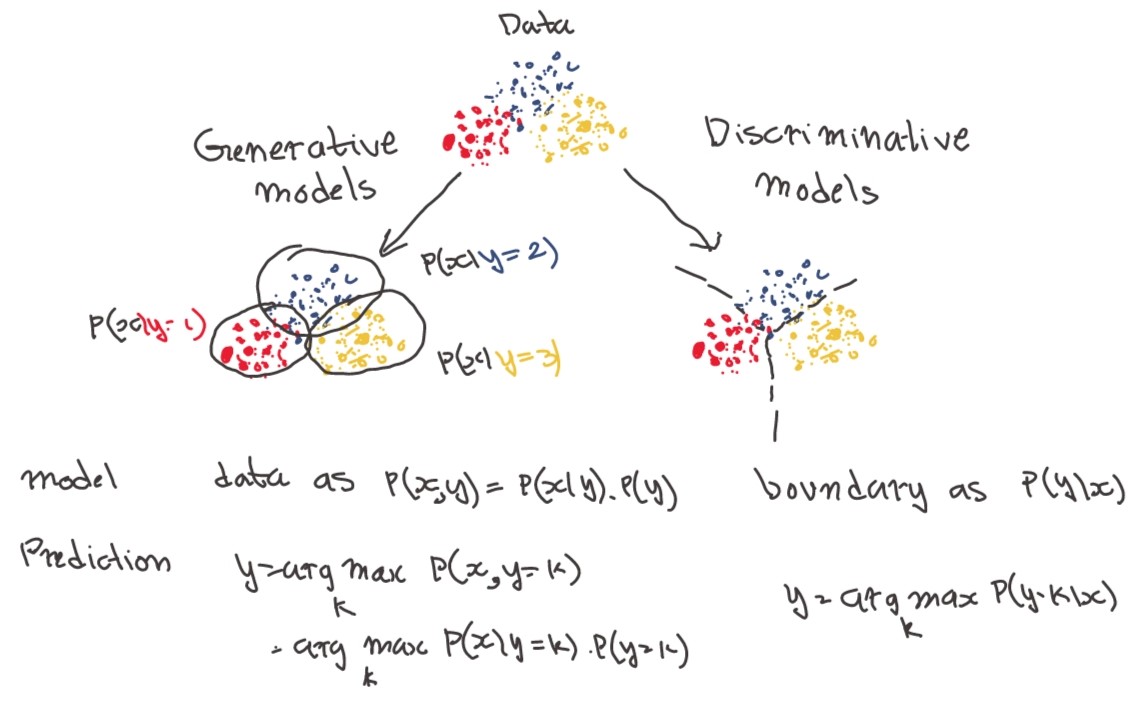 Data
Generative
models
Discriminative
models
P(x|y=2)
P(x|y=1)
P(x|y=3)
model data as P(x,y) = P(x|y).P(y) boundary as P(y|x)
Prediction y=arg max P(x,y=k)
k
y=arg max P(y=k|x)
k
= arg max P(x|y=k).P(y=k)
k